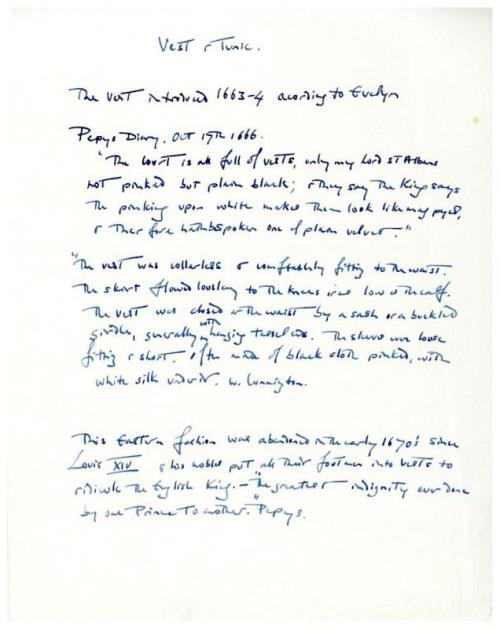 Vest & Tunic.
The vest introduced 1663-4 acording to Evelyn
Pepys Diary. Oct 17th 1666.
"The court is all full of vests, only my Lord St Albans
not pinked but plain black; & they say the King says
the pinking upon white makes them look like magpyes,
& therefore hath bespoken one of plain velvet."
"The vest was collarless & comfortably fitting to the waist.
The skirt flowed loosely to the knees or as low as the calf.
The vest was closed at the waist by a sash or a buckled
girdle, generally with hanging tasseled ends. The sleeves were loose
fitting & short. Often made of black cloth pinked, with
white silk under it. W. Cunnington.
This Eastern fashion was abandoned in the early 1670's since
Louis XIV & his nobles put "all their footmen into vests to
ridicule the English King. - "The greatest indignity ever done
by one Prince to another." Pepys.